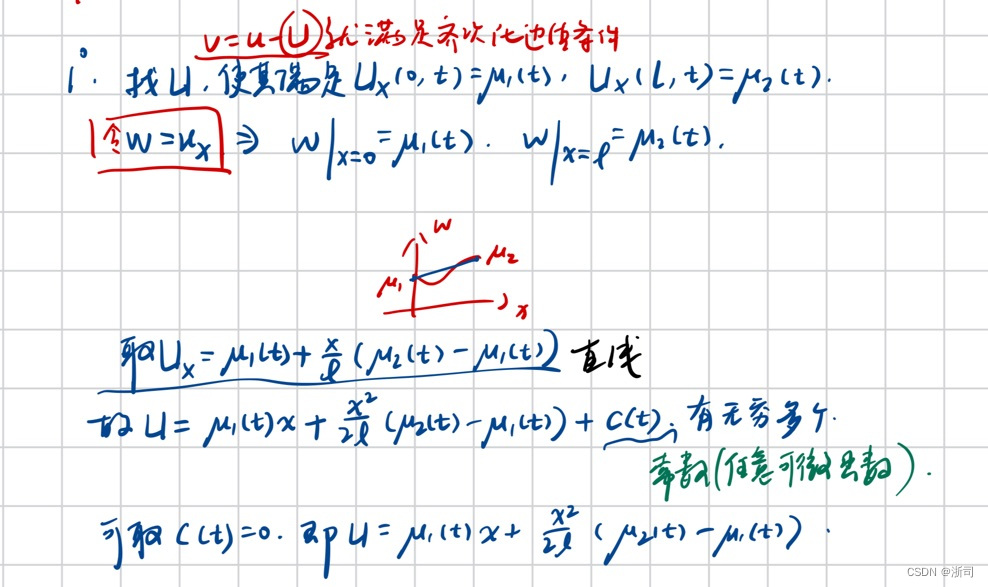 v=u-U 就满足齐次化边值条件
i. 找U,使其满足Ux(0,t)=μ₁(t), Ux(l,t)=μ₂(t).
令w=ux ⇒ w|x=0=μ₁(t). w|x=l=μ₂(t).
w
μ₁ μ₂
x
取Ux=μ₁(t)+x/l(μ₂(t)-μ₁(t)) 直线
故U=μ₁(t)x+x²/2l(μ₂(t)-μ₁(t))+C(t). 有无穷多个.
常数(任意可微函数).
可取C(t)=0. 即U=μ₁(t)x+x²/2l(μ₂(t)-μ₁(t)).
CSDN @浙司